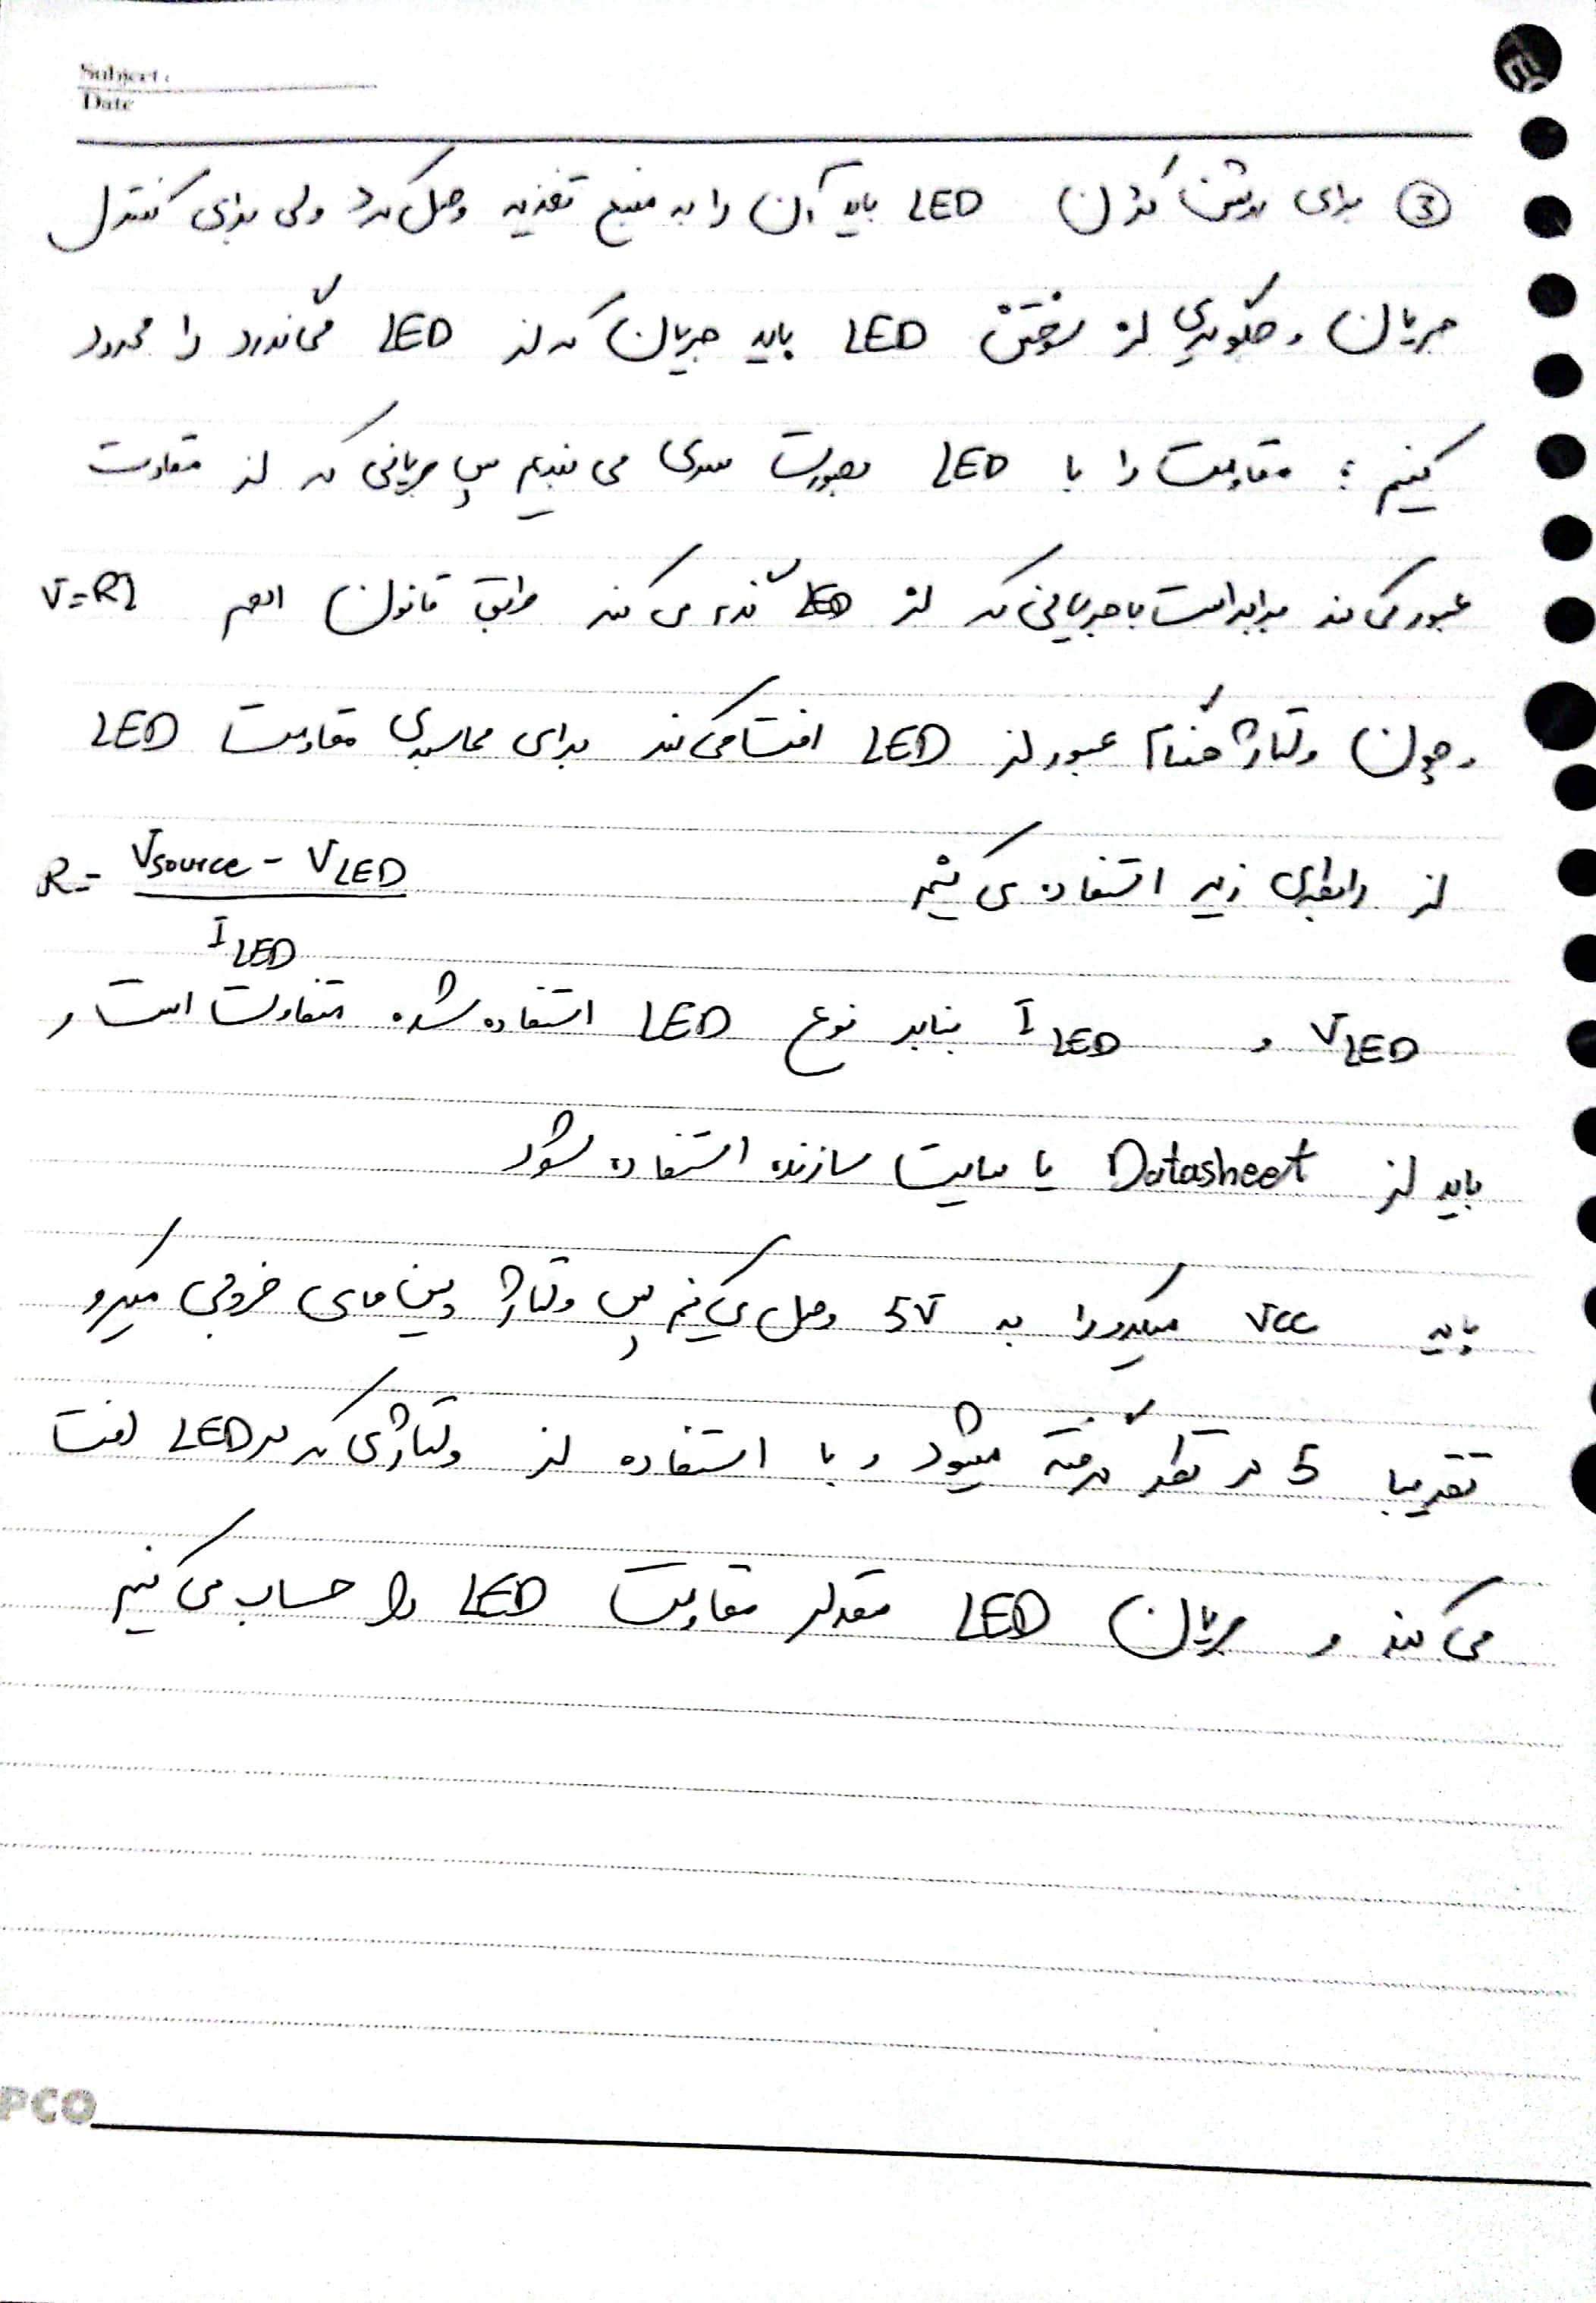 Subject :
Date
③ برای روشن کردن LED باید آن را به منبع تغذیه وصل کرد ولی برای کنترل
جریان و جلوگیری از سوختن LED باید جریان که از LED میگذرد را محدود
کنیم ؛ مقاومت را با LED بصورت سری می بندیم پس جریانی که از مقاومت
عبور می کند برابر است با جریانی که از LED گذر می کند طبق قانون اهم V=RI
و چون ولتاژ هنگام عبور از LED افت می کند برای محاسبه ی مقاومت LED
از رابطه ی زیر استفاده می کنیم R = (Vsource - VLED) / ILED
VLED و ILED بنابر نوع LED استفاده شده متفاوت است و
باید از Datasheet یا سایت سازنده استفاده شود
پایه VCC میکرو را به 5V وصل می کنیم پس ولتاژ پین های خروجی میکرو
تقریبا 5 در نظر گرفته میشود و با استفاده از ولتاژی که در LED افت
می کند و جریان LED مقدار مقاومت LED را حساب می کنیم
PCO